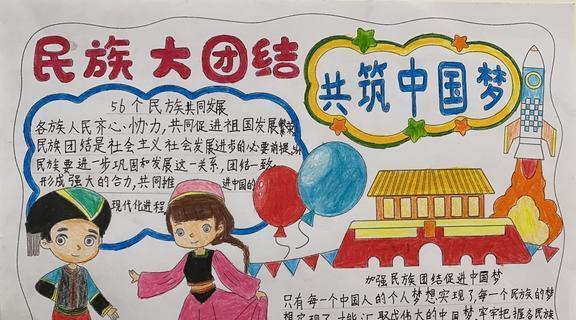 民族大团结
共筑中国梦
56个民族共同发展
各族人民齐心协力,共同促进祖国发展繁荣
民族团结是社会主义社会发展进步的必要前提,
民族要进一步巩固和发展这一关系,团结一致
形成强大的合力,共同推 进中国的
现代化进程
加强民族团结促进中国梦
只有每一个中国人的个人梦想实现了,每一个民族的梦
想实现了,才能汇聚成伟大的中国梦,牢牢把握各民族